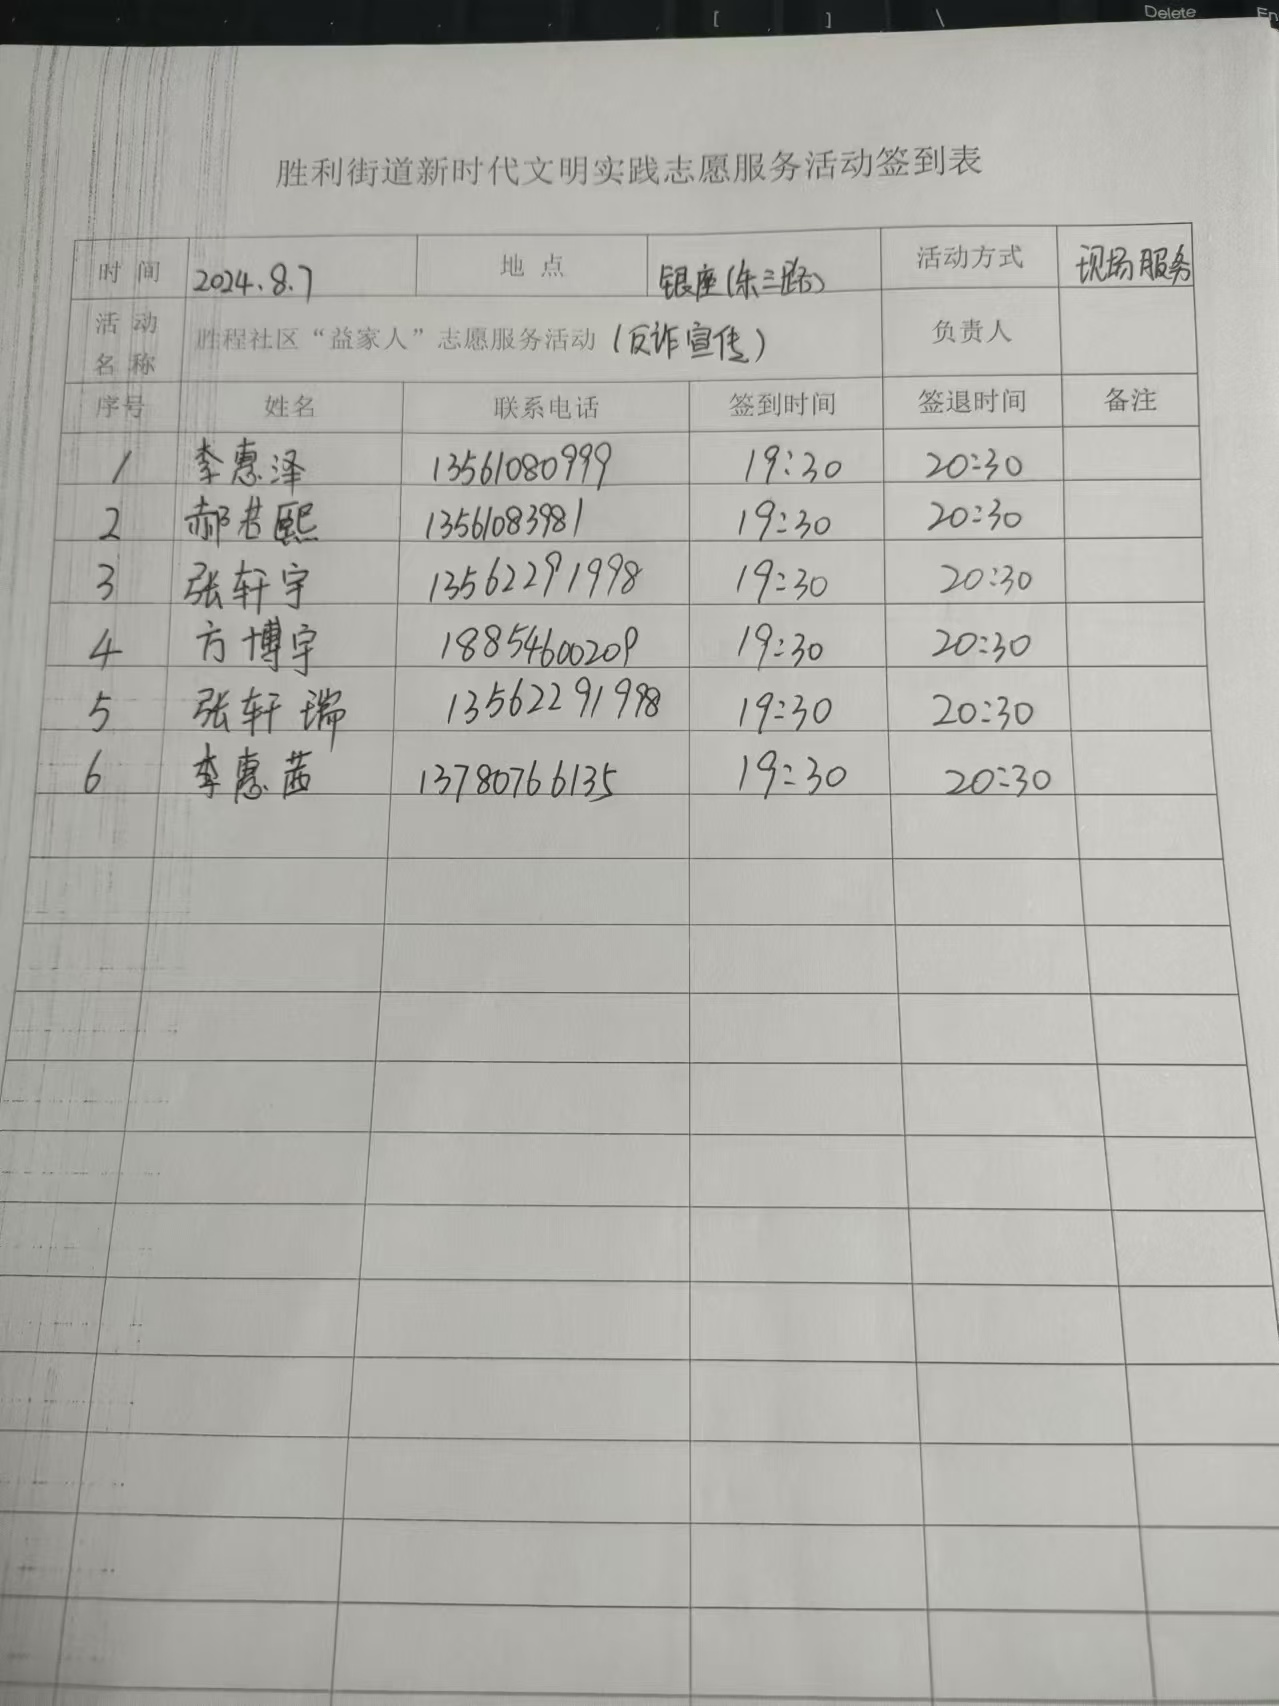 [ ] \ Delete En
胜利街道新时代文明实践志愿服务活动签到表
时间 2024.8.7 地点 银座(东三路) 活动方式 现场服务
活动名称 胜程社区“益家人”志愿服务活动(反诈宣传) 负责人
序号 姓名 联系电话 签到时间 签退时间 备注
1 李惠泽 13561080999 19:30 20:30
2 郝君熙 13561083981 19:30 20:30
3 张轩宇 13562291998 19:30 20:30
4 方博宇 18854600209 19:30 20:30
5 张轩瑞 13562291998 19:30 20:30
6 李惠茜 13780766135 19:30 20:30